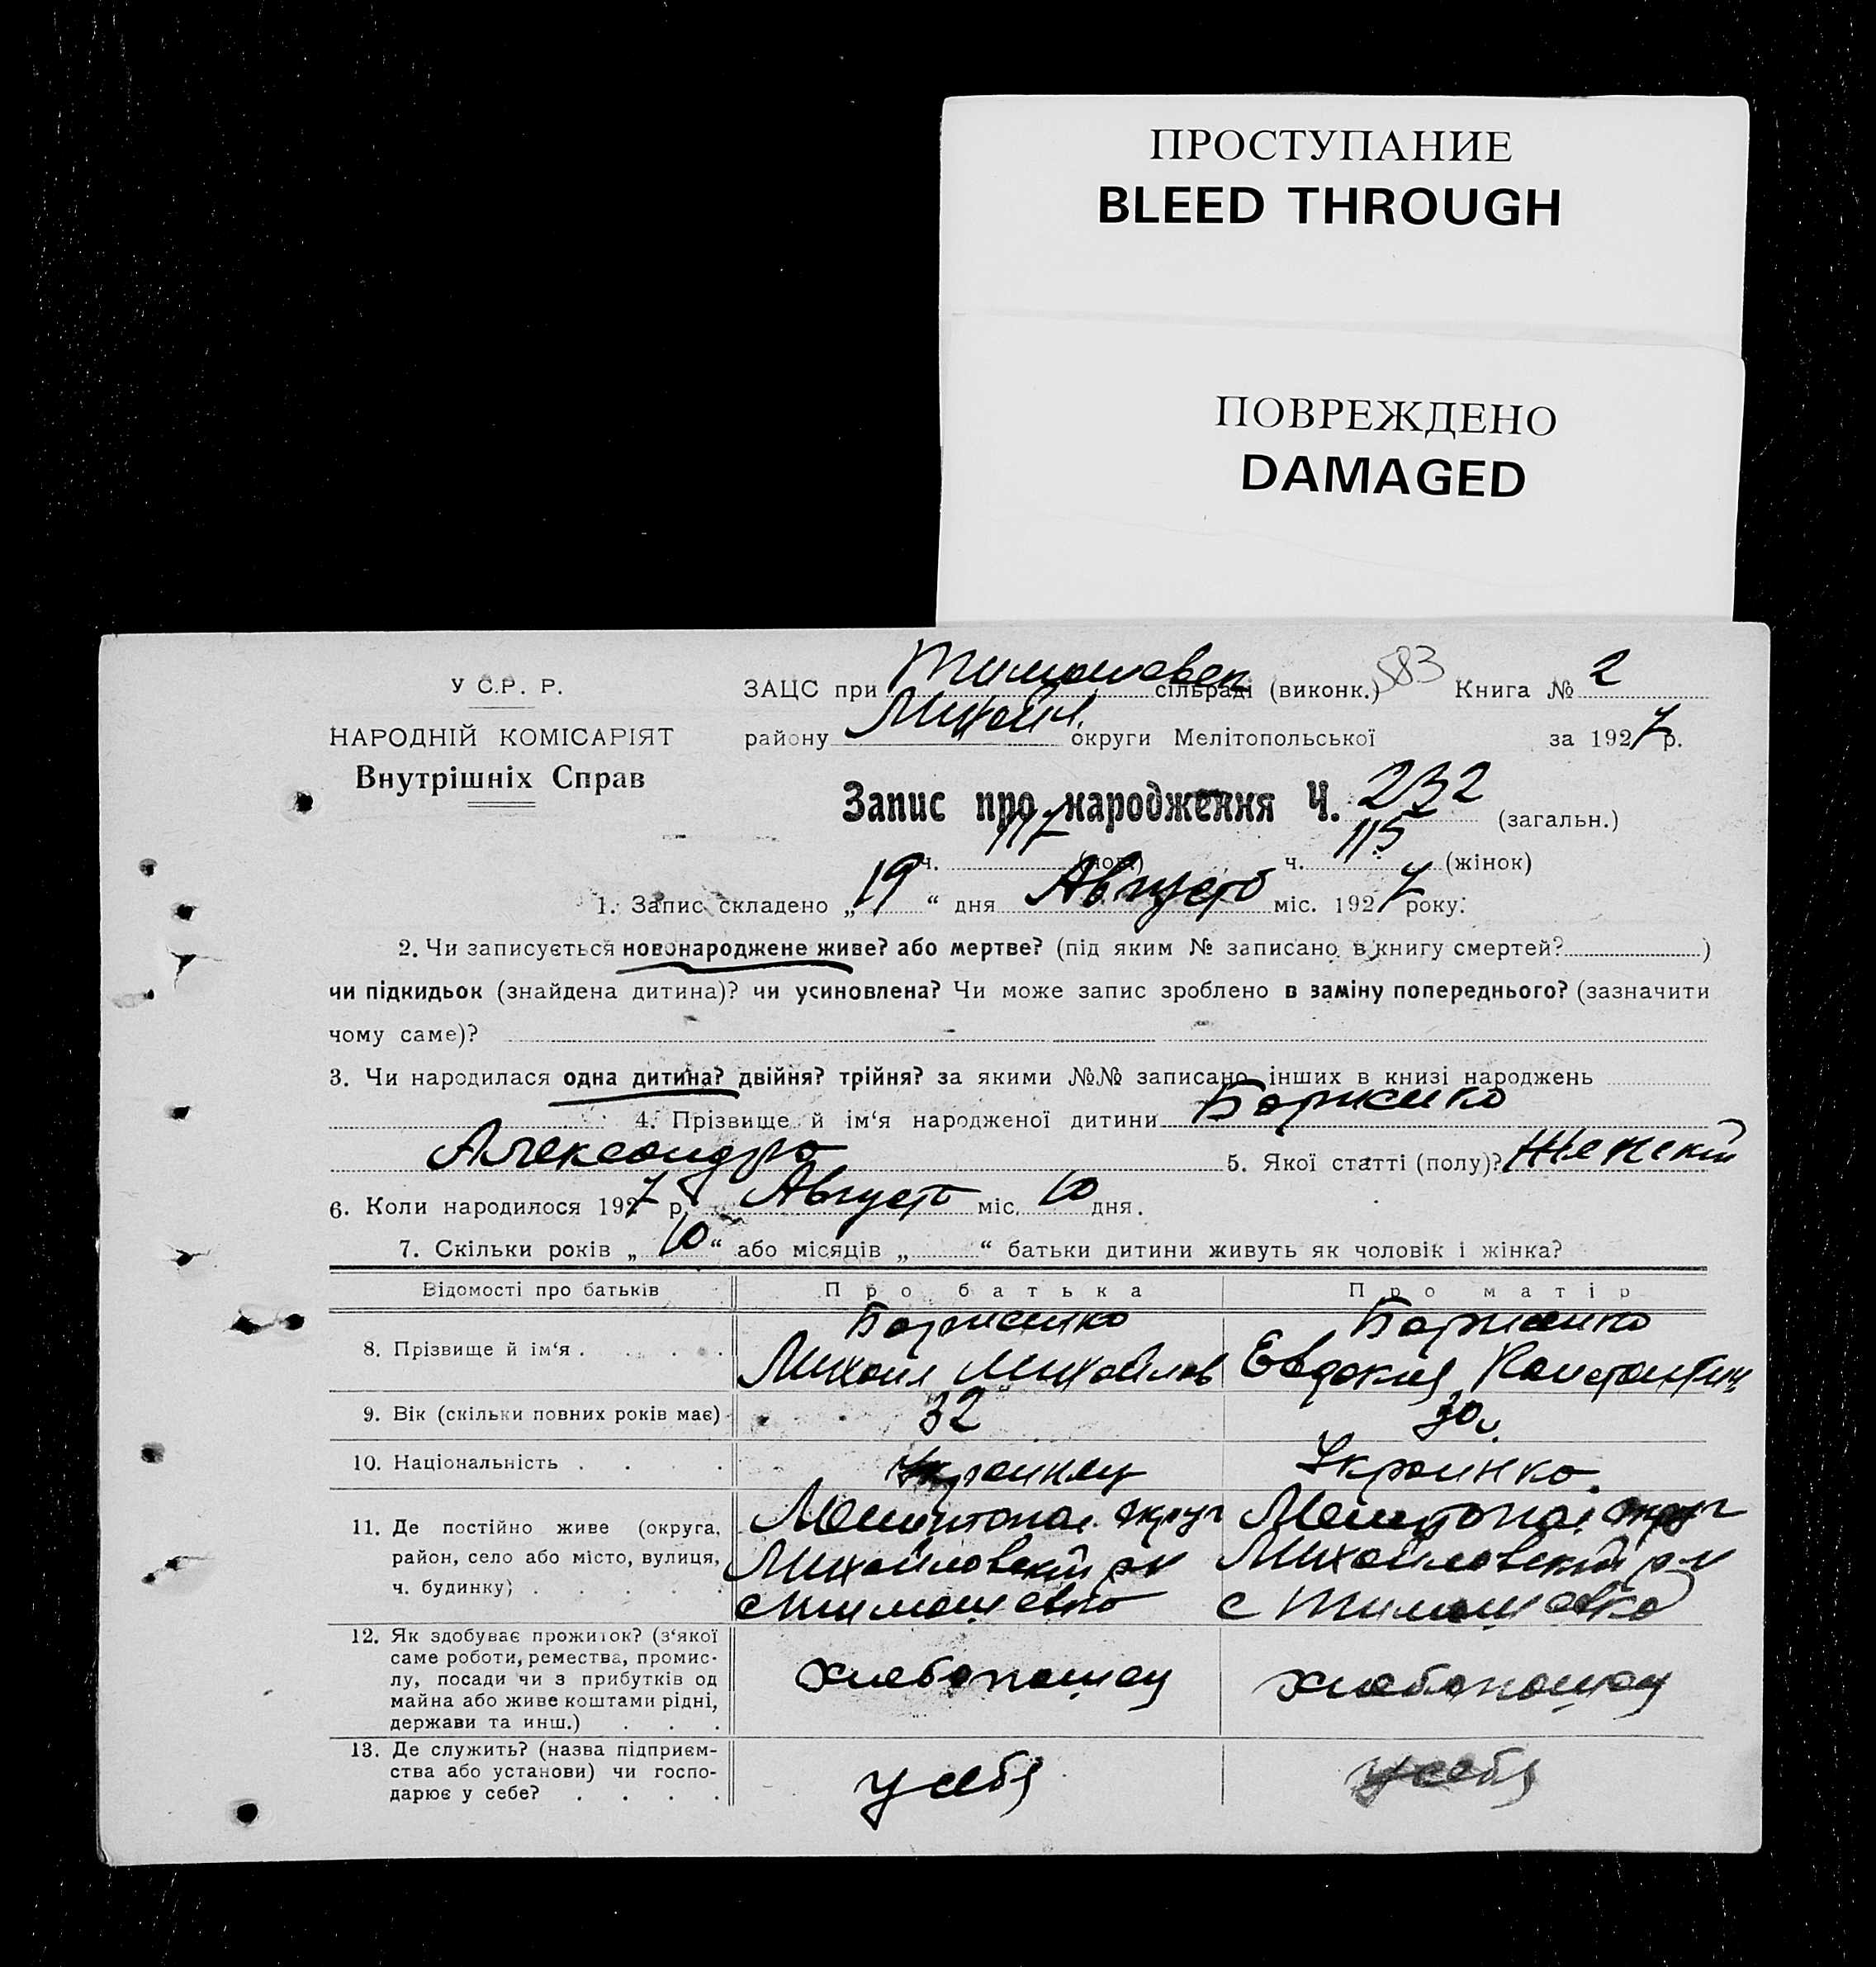 ПРОСТУПАНИЕ
BLEED THROUGH
ПОВРЕЖДЕНО
DAMAGED
У С.Р. Р.
НАРОДНІЙ КОМІСАРІЯТ
Внутрішніх Справ
ЗАЦС при Тимошовск сільраді (виконк.) 583 Книга № 2
району Михайл. округи Мелітопольської за 1927 р.
Запис про народження Ч. 232 (загальн.)
ч. 117 ч. 115 (жінок)
1. Запис складено „19“ дня Август міс. 1927 року.
2. Чи записується новонароджене живе? або мертве? (під яким № записано в книгу смертей? )
чи підкидьок (знайдена дитина)? чи усиновлена? Чи може запис зроблено в заміну попереднього? (зазначити
чому саме)?
3. Чи народилася одна дитина? двійня? трійня? за якими №№ записано інших в книзі народжень
4. Прізвище й ім‘я народженої дитини
Александра 5. Якої статті (полу)? Женский
6. Коли народилося 1927 р. Август міс. 10 дня.
7. Скільки років „10“ або місяців „ “ батьки дитини живуть як чоловік і жінка?
Відомості про батьків Про батька Про матір
8. Прізвище й ім‘я . . . . . Михаил Михайлов Евдокия Константин
9. Вік (скільки повних років має) 32 30
10. Національність . . . . Украинец Украинка
11. Де постійно живе (округа, Мелитопол. округ Мелитопол. округ
район, село або місто, вулиця, Михайловский р-н Михайловский р-н
ч. будинку) . . . . . с Тимошевка с Тимошевка
12. Як здобуває прожиток? (з‘якої
саме роботи, ремества, промис-
лу, посади чи з прибутків од хлебопашец хлебопашец
майна або живе коштами рідні,
держави та инш.) . . .
13. Де служить? (назва підприєм-
ства або установи) чи госпо- у себя у себя
дарює у себе? . . . .